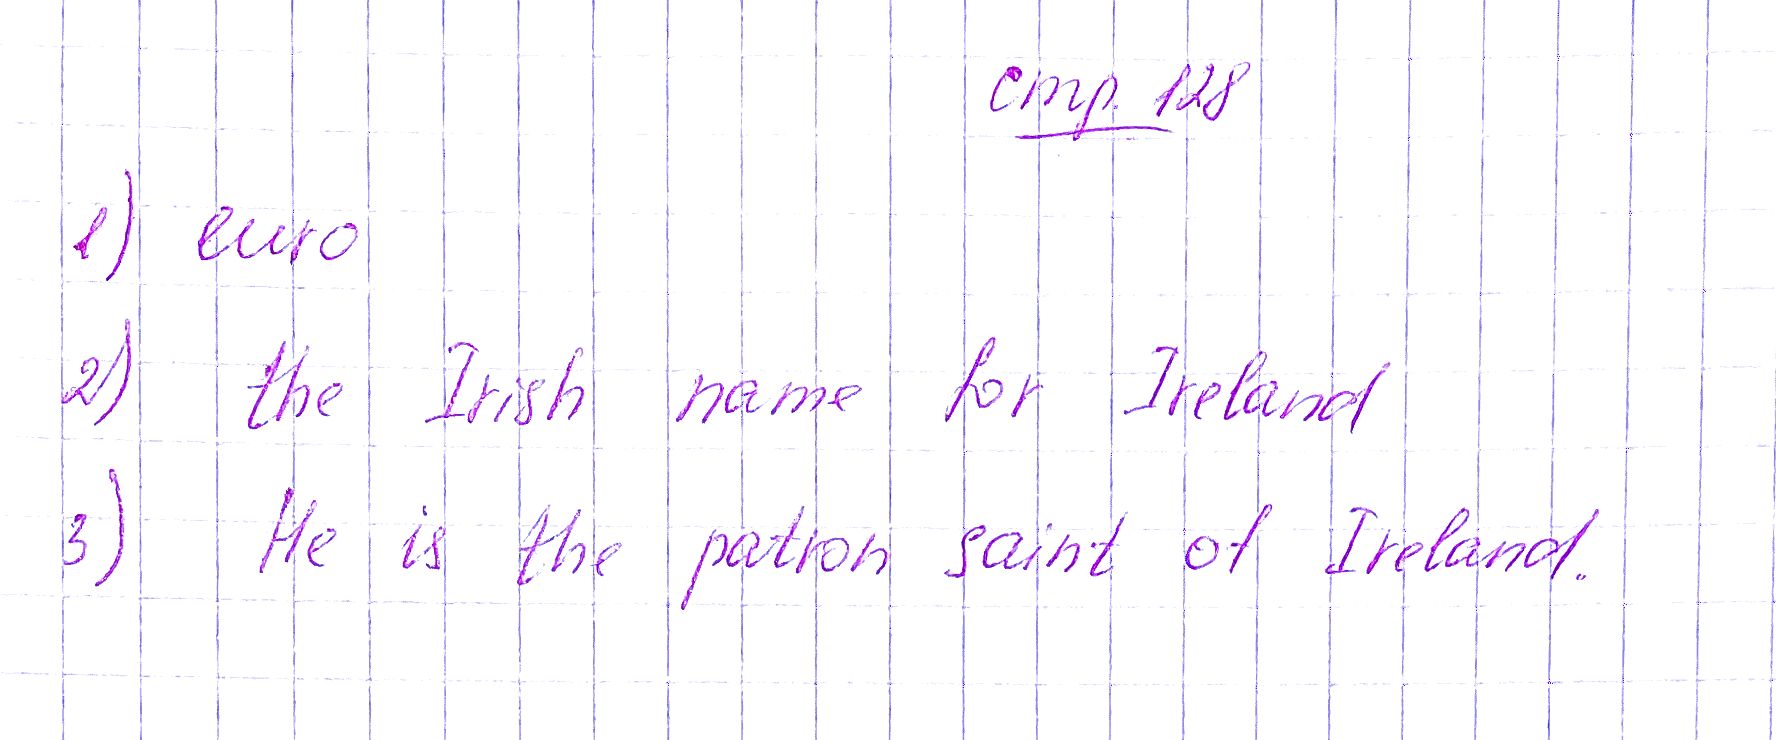 стр. 128
1) euro
2) the Irish name for Ireland
3) He is the patron saint of Ireland.